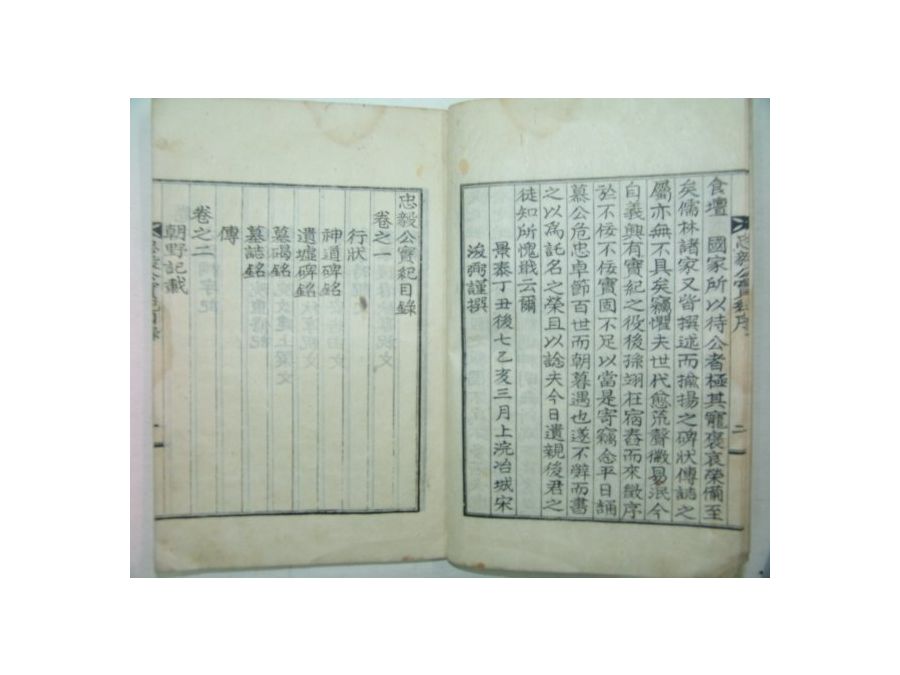 食壇 國家所以待公者極其寵褒哀榮備至
矣儒林諸家又皆撰述而揄揚之碑狀傳誌之
屬亦無不具矣竊懼夫世代愈流聲微易泯今
自義興有寶紀之役後孫翊在宿舂而來徵序
於不佞不佞實固不足以當是寄竊念平日誦
慕公危忠卓節百世而朝暮遇也遂不辭而書
之以為託名之榮且以諗夫今日遺親後君之
徒知所愧戢云爾
景泰丁丑後七乙亥三月上浣冶城宋
浚弼謹撰
忠毅公實紀序 二
忠毅公實紀目錄
卷之一
行狀
神道碑銘
遺墟碑銘
墓碣銘
墓誌銘
傳
卷之二
朝野記載
忠毅公實紀目錄 一